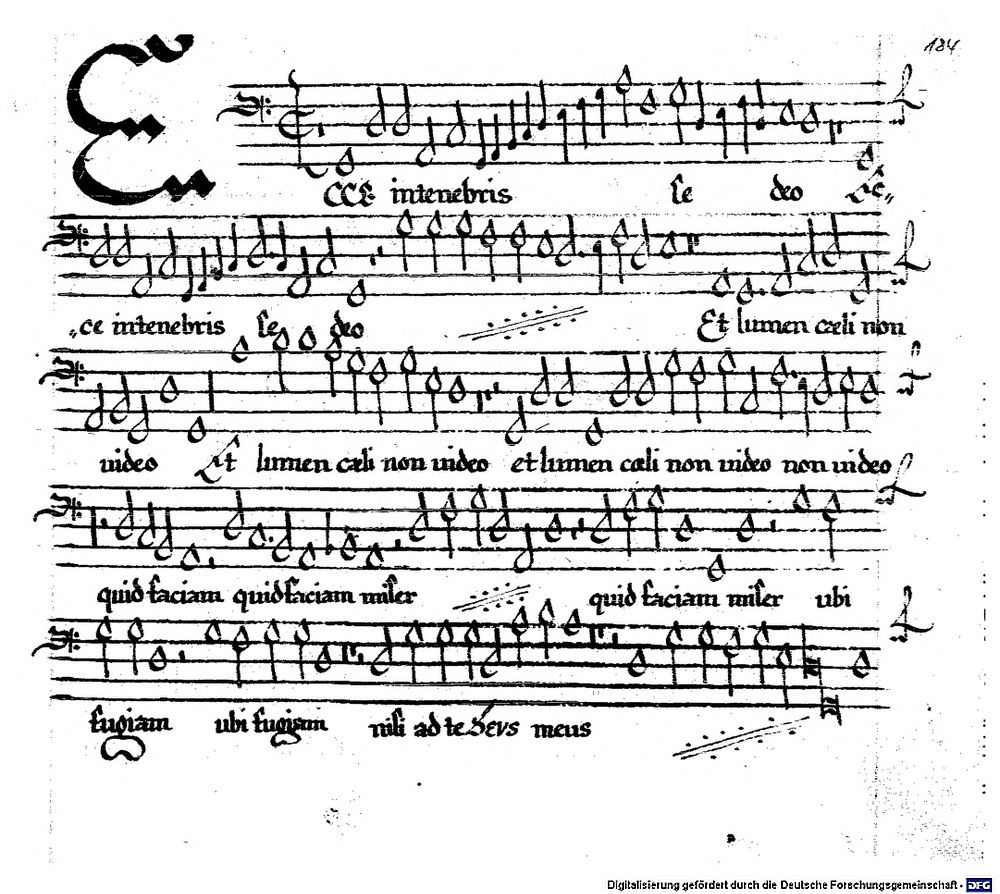 184
ECCE intenebris se deo Ec„
„ce intenebris se deo Et lumen cæli non
video Et lumen cæli non video et lumen cœli non video non video
quid faciam quid faciam miser quid faciam miser ubi
fugiam ubi fugiam nisi ad te Deus meus
Digitalisierung gefördert durch die Deutsche Forschungsgemeinschaft - DFG